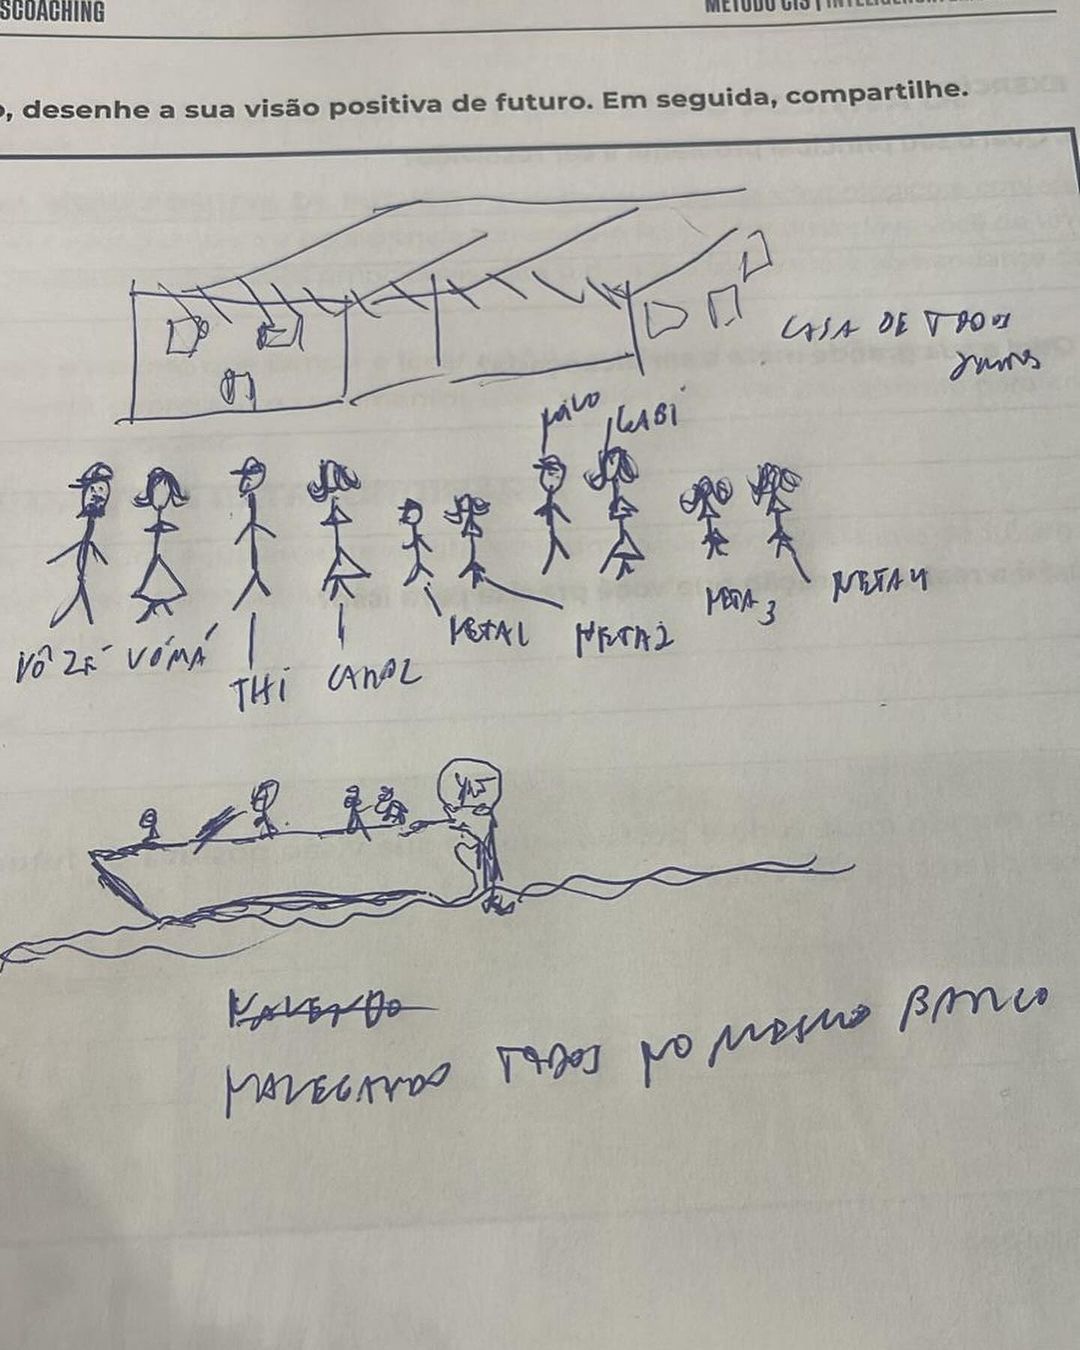 SCOACHING
MÉTODO CIS | INTELIGÊNCIA
o, desenhe a sua visão positiva de futuro. Em seguida, compartilhe.
CASA DE TODOS
JUNTOS
GABI
VÔ ZÉ VÓ MÁ THI CAROL NETA 1 NETA 2 NETA 3 NETA 4
YWF
NAVEGANDO TODOS NO MESMO BARCO